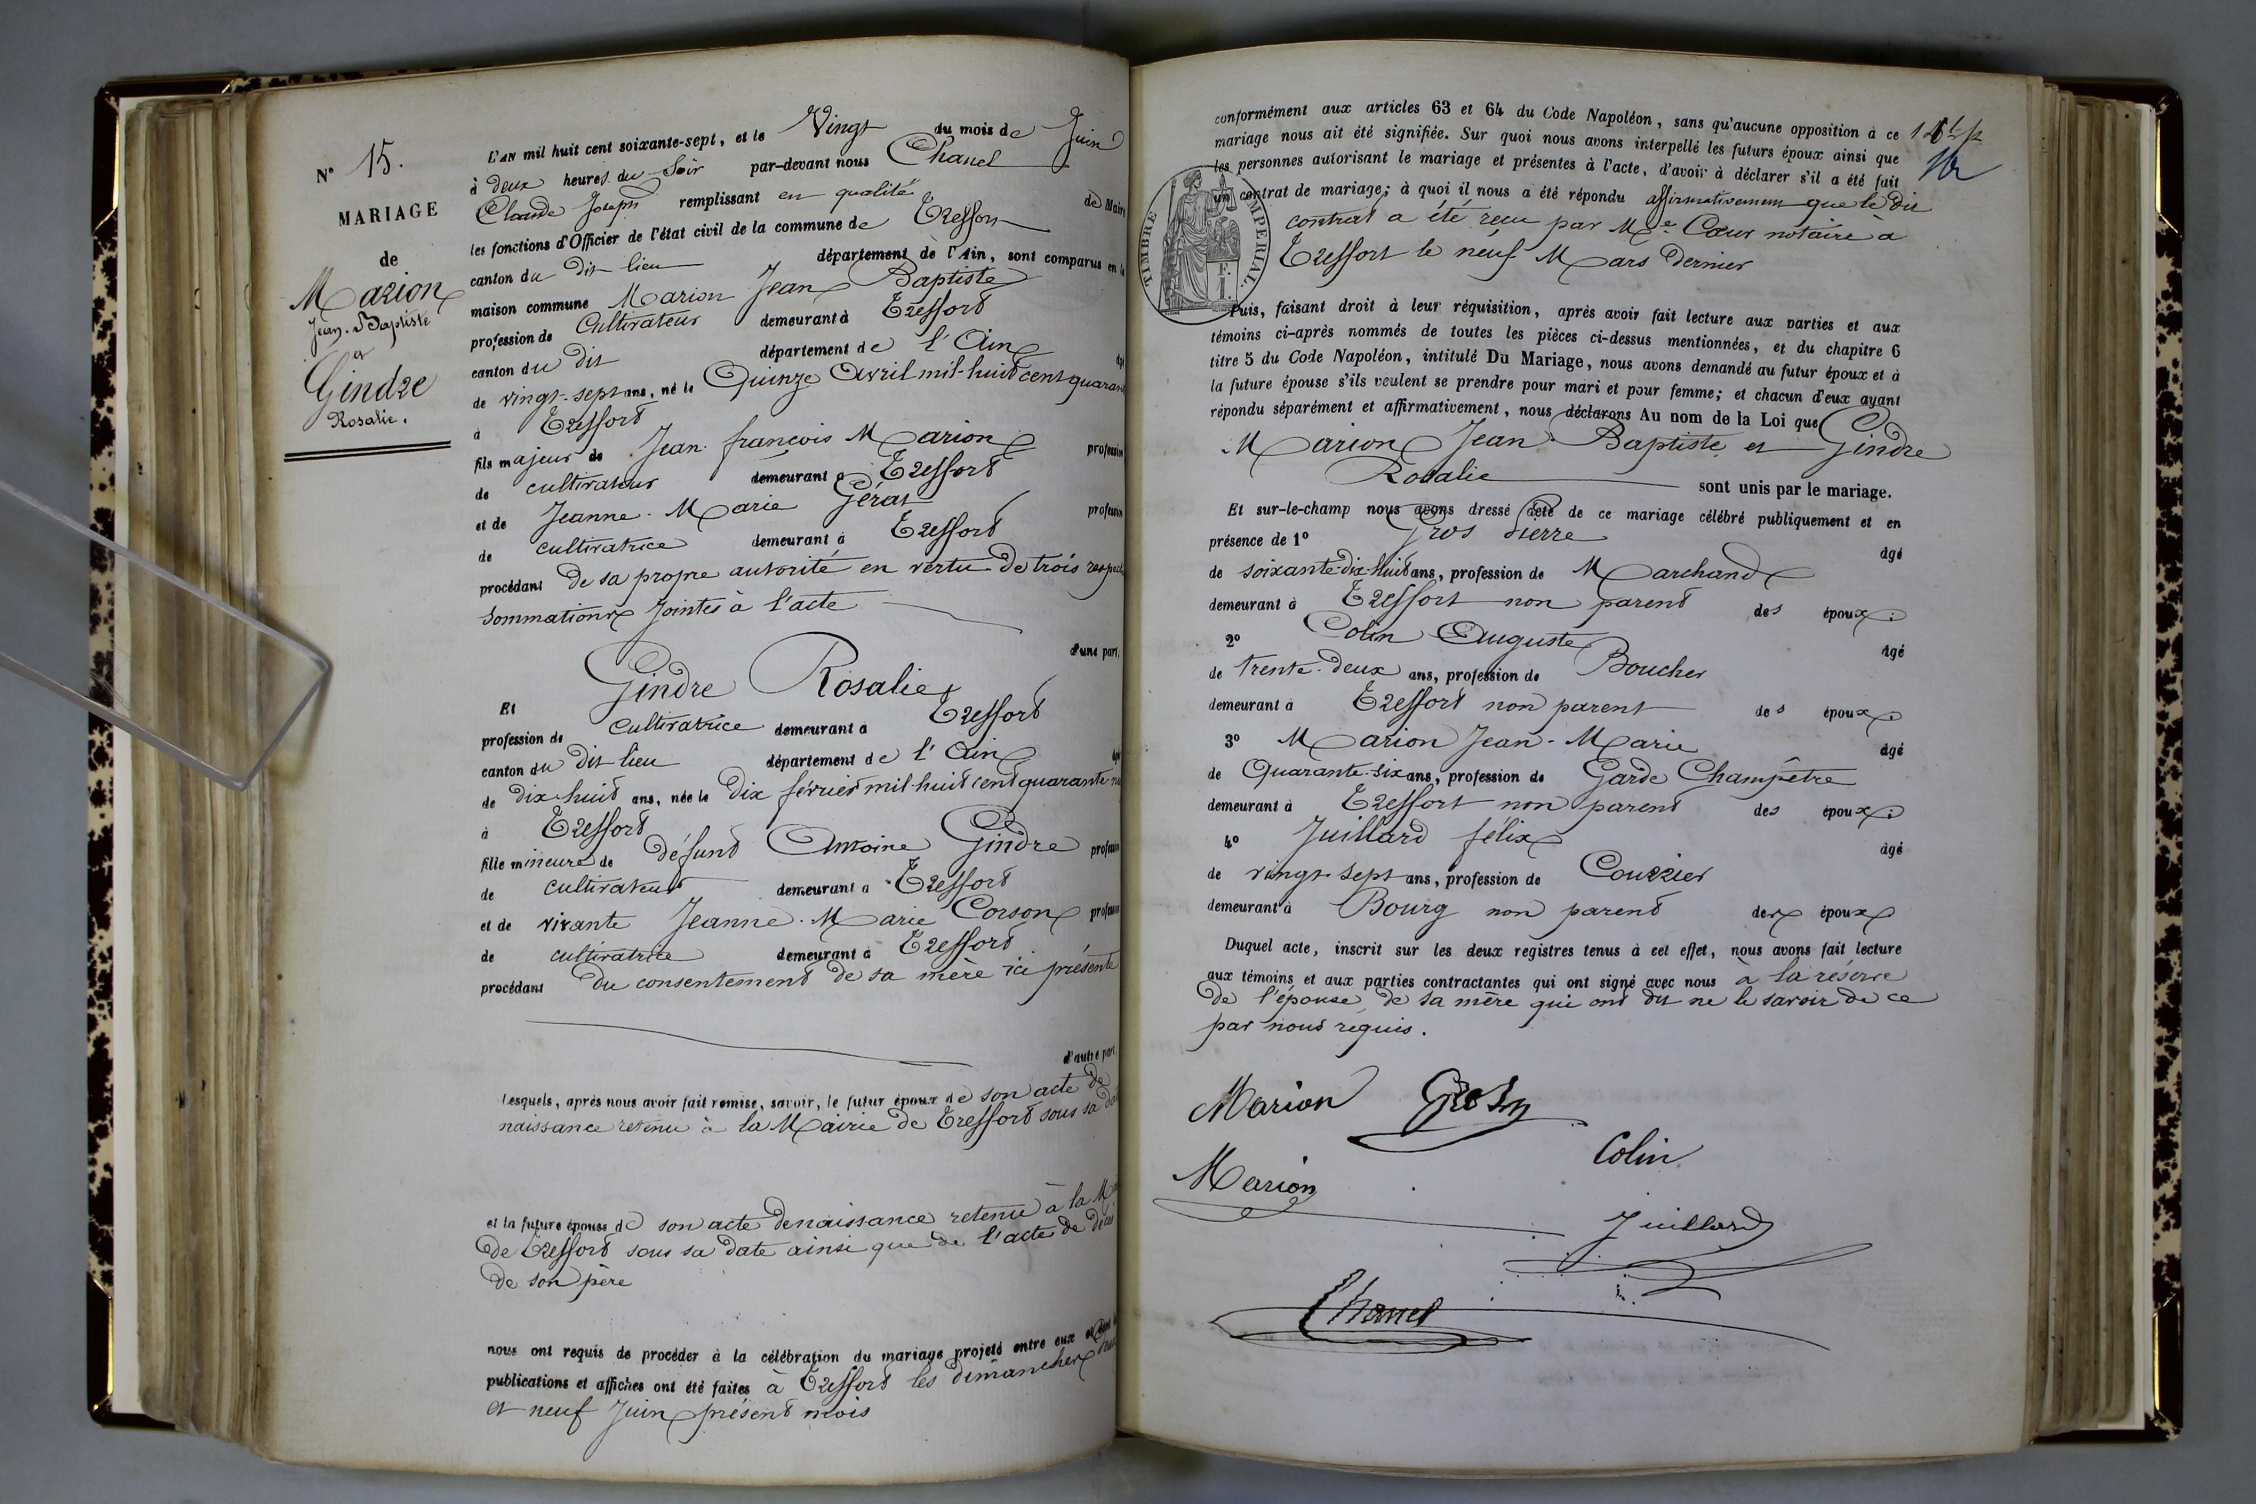 N° 15.
MARIAGE
de
Marion
Jean-Baptiste
et
Gindre
Rosalie.
L'AN mil huit cent soixante-sept, et le Vingt du mois de Juin
à deux heures du Soir par-devant nous Chanel
Claude Joseph remplissant en qualité de Maire
les fonctions d'Officier de l'état civil de la commune de Treffort
canton du dit lieu département de l'Ain, sont comparus en la
maison commune Marion Jean Baptiste
profession de Cultivateur demeurant à Treffort
canton du dit département de l'Ain âgé
de vingt-sept ans, né le Quinze Avril mil-huit cent quarante
à Treffort
fils majeur de Jean-françois Marion profession
de cultivateur demeurant à Treffort
et de Jeanne-Marie Gérat profession
de cultivatrice demeurant à Treffort
procédant de sa propre autorité en vertu de trois respect
sommations jointes à l'acte
d'une part,
Et Gindre Rosalie
profession de cultivatrice demeurant à Treffort
canton du dit lieu département de l'Ain
de dix-huit ans, née le dix février mil-huit cent quarante
à Treffort
fille mineure de défunt Antoine Gindre profession
de cultivateur demeurant à Treffort
et de vivante Jeanne-Marie Corson profession
de cultivatrice demeurant à Treffort
procédant du consentement de sa mère ici présente
d'autre part
Lesquels, après nous avoir fait remise, savoir, le futur époux de son acte de
naissance retenu à la Mairie de Treffort sous sa
et la future épouse de son acte de naissance retenu à la
de Treffort sous sa date ainsi que de l'acte de décès
de son père
nous ont requis de procéder à la célébration du mariage projeté entre eux et dont
publications et affiches ont été faites à Treffort les dimanches
et neuf Juin présent mois
conformément aux articles 63 et 64 du Code Napoléon, sans qu'aucune opposition à ce
mariage nous ait été signifiée. Sur quoi nous avons interpellé les futurs époux ainsi que
les personnes autorisant le mariage et présentes à l'acte, d'avoir à déclarer s'il a été fait
un contrat de mariage; à quoi il nous a été répondu affirmativement que le dit
contrat a été reçu par Me Cœur notaire à
Treffort le neuf Mars dernier
TIMBRE IMPERIAL.
Puis, faisant droit à leur réquisition, après avoir fait lecture aux parties et aux
témoins ci-après nommés de toutes les pièces ci-dessus mentionnées, et du chapitre 6
titre 5 du Code Napoléon, intitulé Du Mariage, nous avons demandé au futur époux et à
la future épouse s'ils veulent se prendre pour mari et pour femme; et chacun d'eux ayant
répondu séparément et affirmativement, nous déclarons Au nom de la Loi que
Marion Jean-Baptiste et Gindre
Rosalie sont unis par le mariage.
Et sur-le-champ nous avons dressé acte de ce mariage célébré publiquement et en
présence de 1° Gros Pierre âgé
de soixante-dix-huit ans, profession de Marchand
demeurant à Treffort non parent des époux.
2° Colin Auguste âgé
de trente-deux ans, profession de Boucher
demeurant à Treffort non parent des époux.
3° Marion Jean-Marie âgé
de Quarante-six ans, profession de Garde Champêtre
demeurant à Treffort non parent des époux.
4° Juillard félix âgé
de vingt-sept ans, profession de Courrier
demeurant à Bourg non parent des époux
Duquel acte, inscrit sur les deux registres tenus à cet effet, nous avons fait lecture
aux témoins et aux parties contractantes qui ont signé avec nous à la réserve
de l'épouse de sa mère qui ont dit ne le savoir de ce
par nous réquis.
Marion Gros
Colin
Marion
Juillard
Chanel